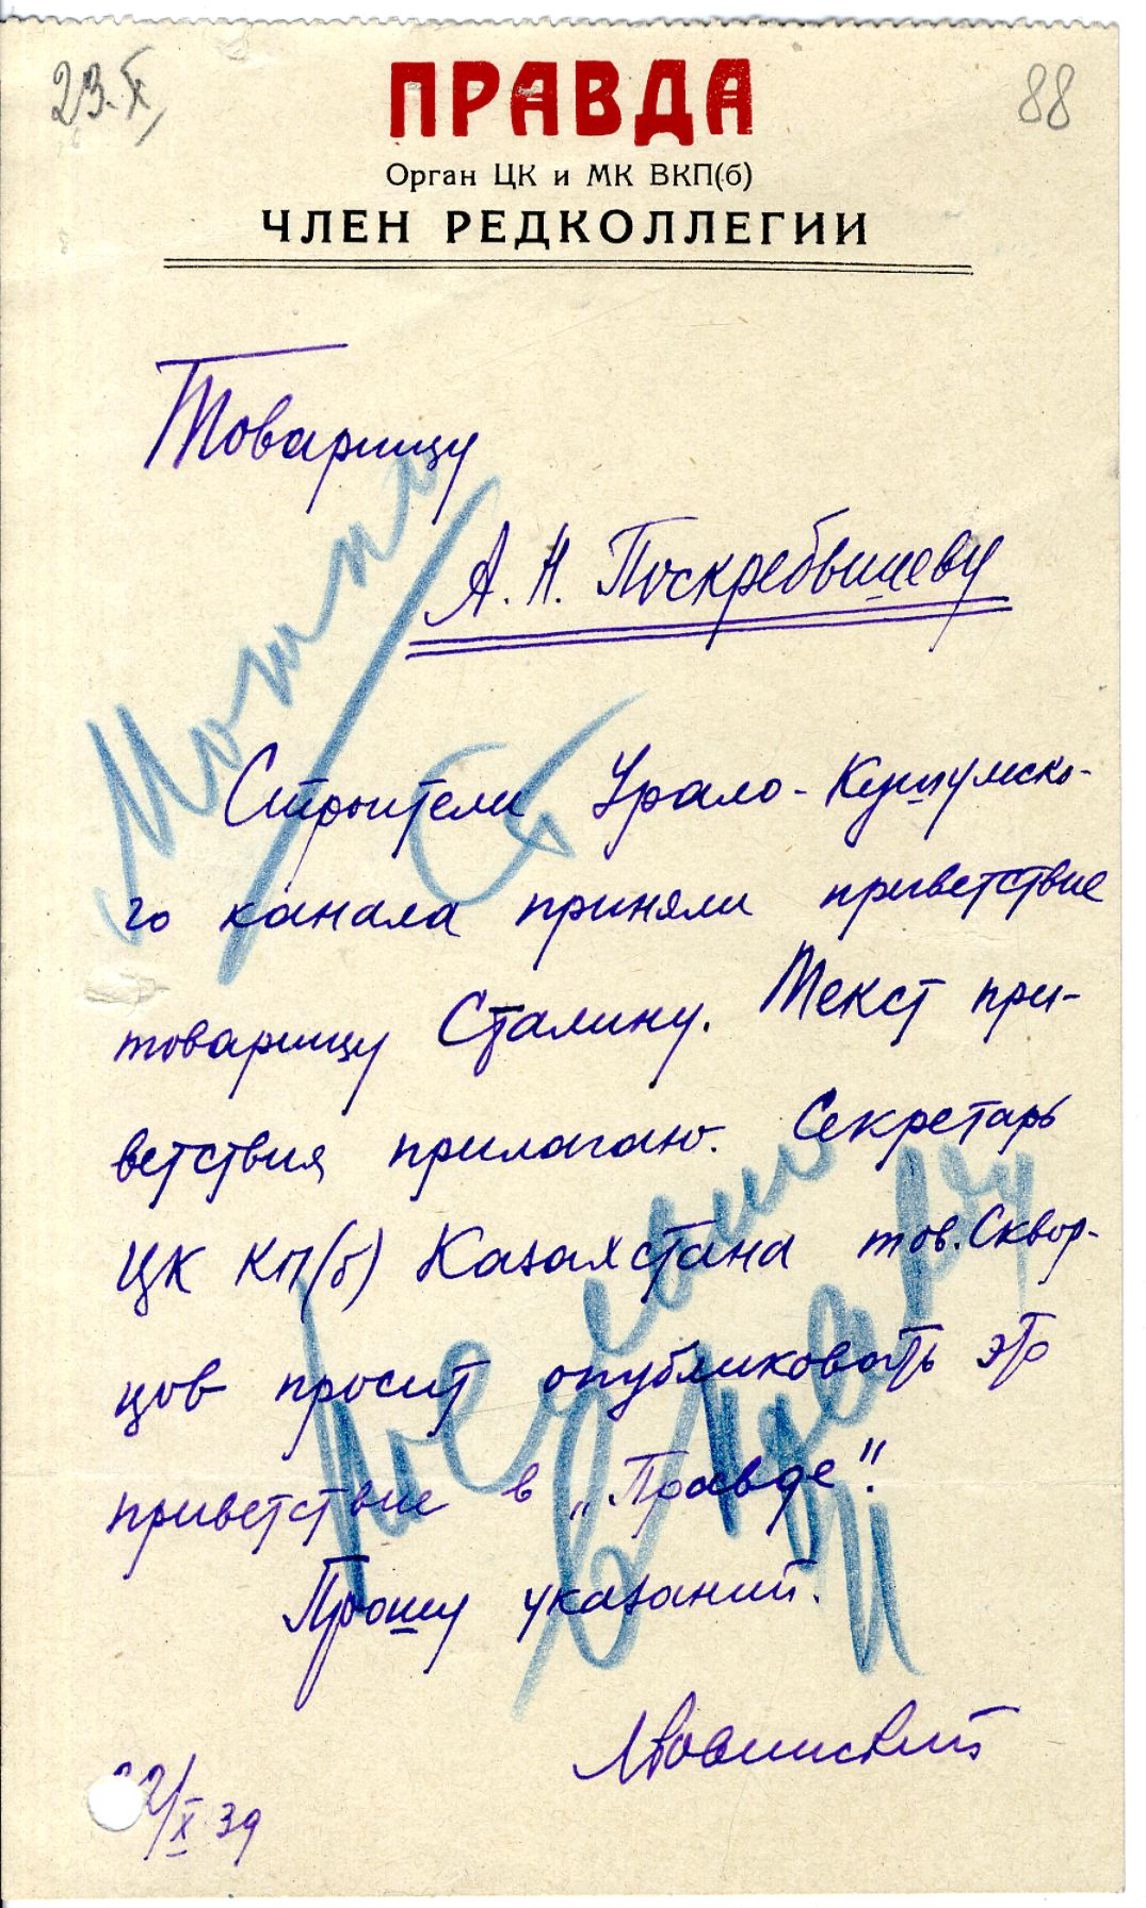 23.X
88
ПРАВДА
Орган ЦК и МК ВКП(б)
ЧЛЕН РЕДКОЛЛЕГИИ
Товарищу
А. Н. Поскребышеву
Можно
Строители Урало-Кушумско-
го канала приняли приветствие
товарищу Сталину. Текст при-
ветствия прилагаю. Секретарь
ЦК КП(б) Казахстана тов. Сквор-
цов просит опубликовать это
приветствие в „Правде".
Прошу указаний.
Ровинский
22/X 39